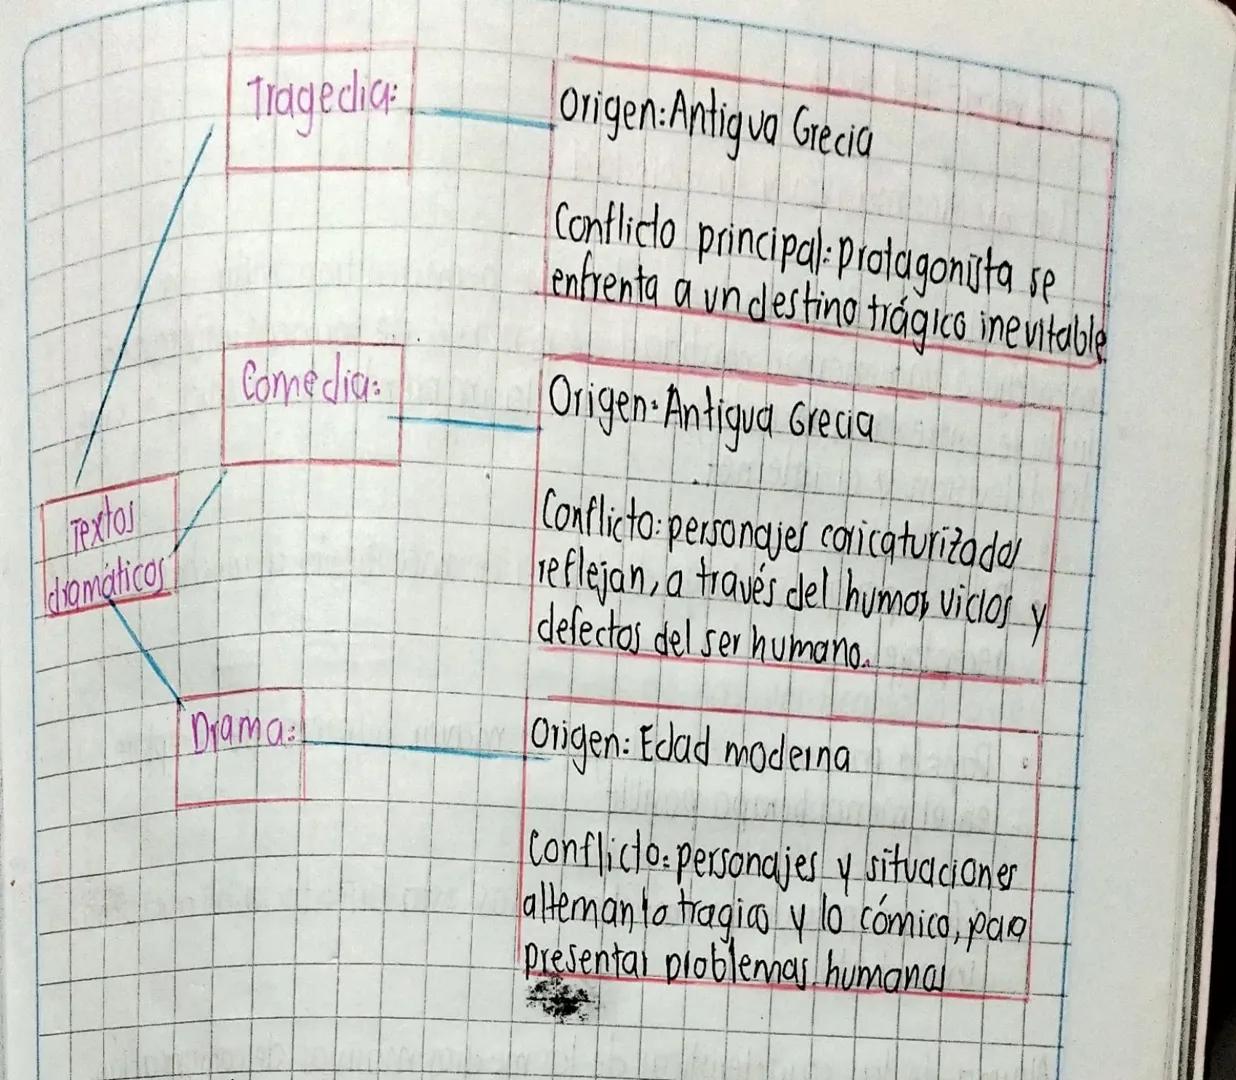 Tragedia:
Origen: Antigua Grecia
Conflicto principal: protagonista se
enfrenta a un destino trágico inevitable
Comedia:
Origen: Antigua Grecia
Conflicto: personajes caricaturizados
reflejan, a través del humor, vicios y
defectos del ser humano.
Textos
dramáticos
Drama:
Origen: Edad moderna
Conflicto: personajes y situaciones
alternan lo tragico y lo cómico, para
presentar problemas humanas